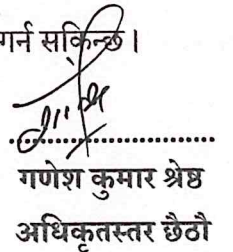 गर्न सकिन्छ।
गणेश कुमार श्रेष्ठ
अधिकृतस्तर छैठौ